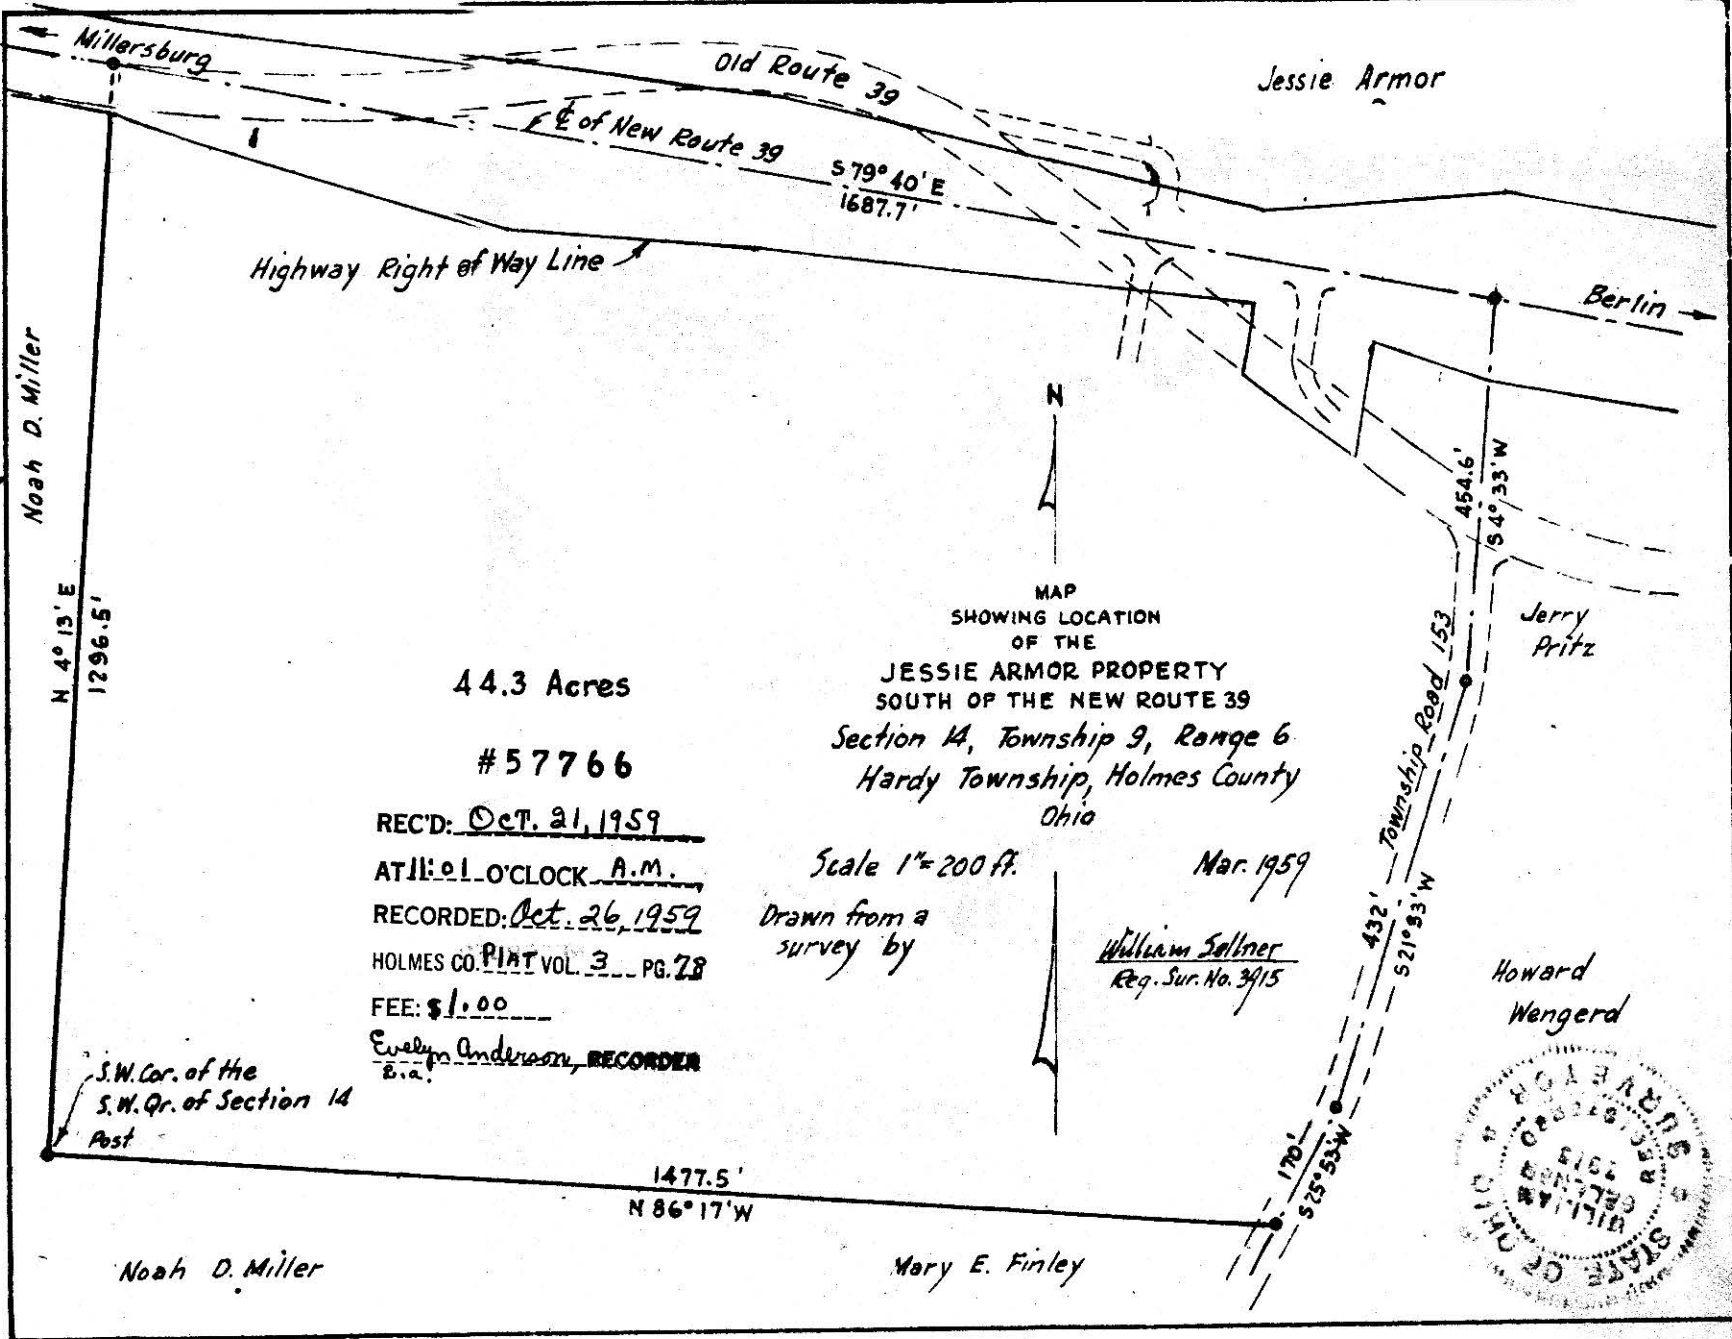 Millersburg
Old Route 39
Jessie Armor
℄ of New Route 39
S 79° 40' E
1687.7'
Highway Right of Way Line
Berlin
Noah D. Miller
N
454.6'
S 4° 33' W
N 4° 13' E
1296.5'
MAP
SHOWING LOCATION
OF THE
JESSIE ARMOR PROPERTY
SOUTH OF THE NEW ROUTE 39
Section 14, Township 9, Range 6
Hardy Township, Holmes County
Ohio
Scale 1"=200 ft.
Mar. 1959
Drawn from a
survey by
William Sellner
Reg. Sur. No. 3915
44.3 Acres
#57766
REC'D: OCT. 21, 1959
AT 11:01 O'CLOCK A.M.
RECORDED: Oct. 26, 1959
HOLMES CO. PLAT VOL. 3 PG. 78
FEE: $1.00
Evelyn Anderson, RECORDER
E.a.
Jerry
Pritz
Township Road 153
432'
S 21° 53' W
Howard
Wengerd
170'
S 25° 53' W
S.W. Cor. of the
S.W. Qr. of Section 14
Post
1477.5'
N 86° 17' W
Noah D. Miller
Mary E. Finley
STATE OF OHIO
SURVEYOR
REGISTERED
WILLIAM